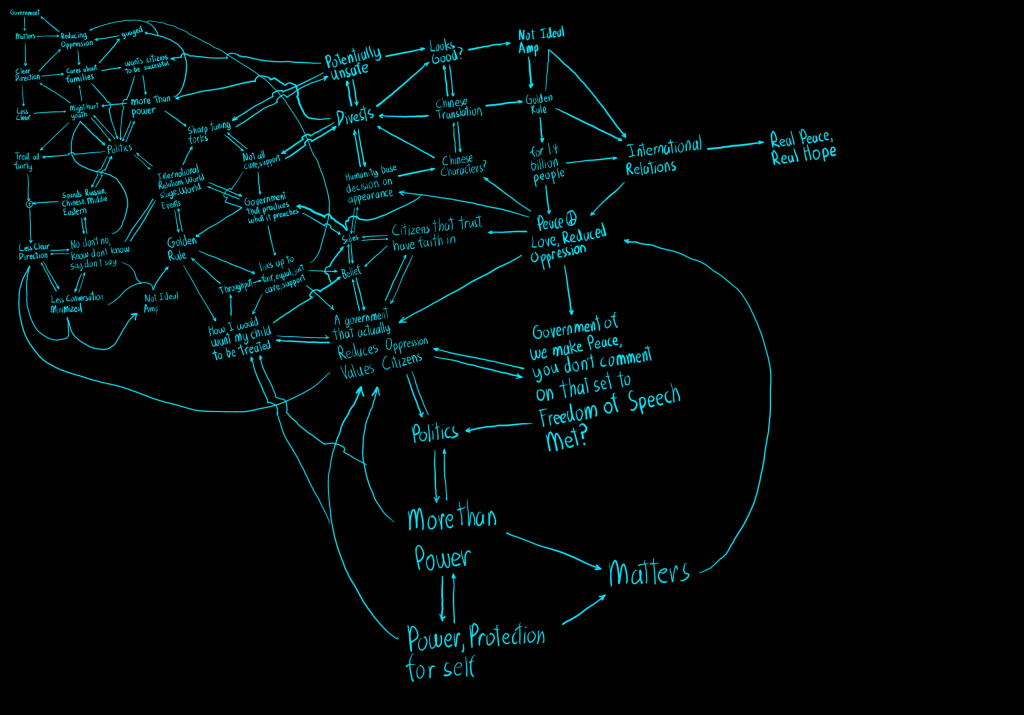 Government
Matters
Reducing
Oppression
gauged
Clear
Direction
Cares about
families
wants citizens
to be successful
Less
Clear
Might hurt
youth
more than
power
Treat all
fairly
Politics
Sharp tuning
forks
Not all
care, support
Sounds Russian
Chinese, Middle
Eastern
International
Relations, World
Stage, World
Events
Government
that practices
what it preaches
Less Clear
Direction
No don't no,
know don't know
say don't say
Golden
Rule
Less Conversation
Minimized
Not Ideal
Amp
Throughput
lives up to
fair, equal, not
care, support
How I would
want my child
to be treated
Potentially
unsafe
Looks
Good?
Not Ideal
Amp
Divests
Chinese
Translation
Golden
Rule
Humanity base
decision on
appearance
Chinese
Characters?
for 1.4
billion
people
International
Relations
Real Peace,
Real Hope
Sides
Citizens that trust
have faith in
Peace
Love, Reduced
Oppression
Belief
A government
that actually
Reduces Oppression
Values Citizens
Government of
we make Peace,
you don't comment
on that set to
Freedom of Speech
Met?
Politics
More than
Power
Matters
Power, Protection
for self